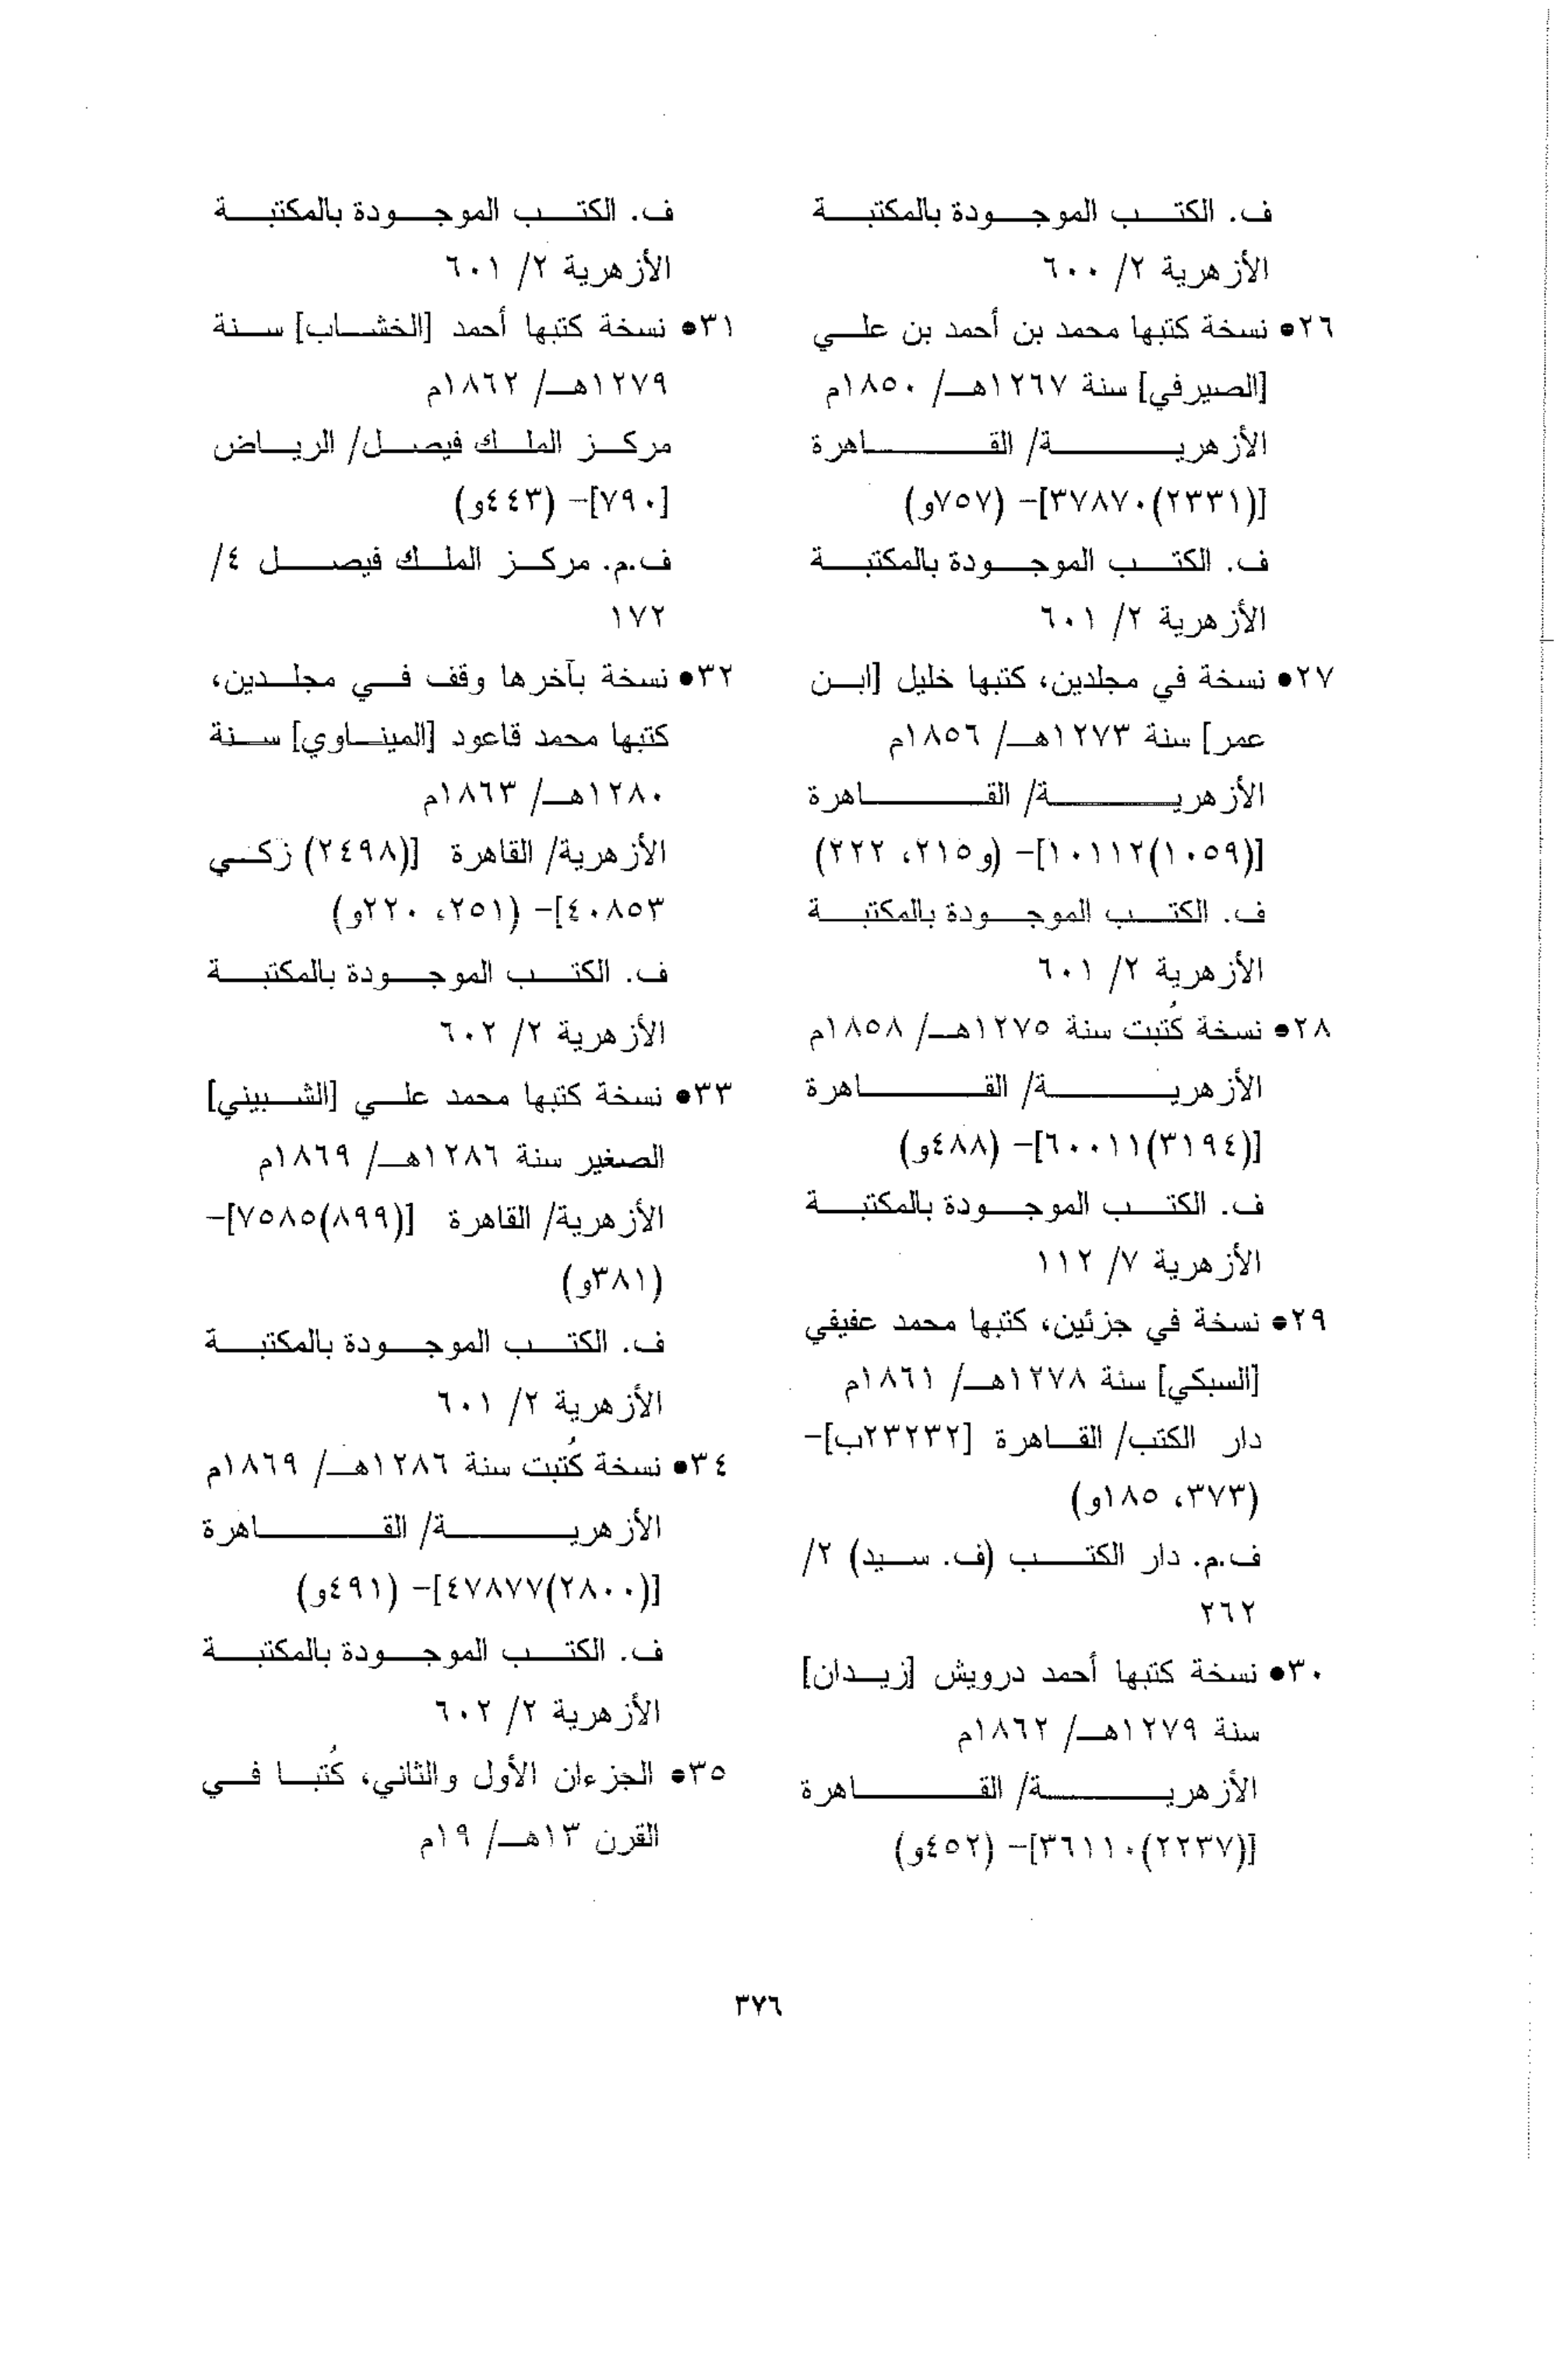 ف. الكتب الموجودة بالمكتبة
الأزهرية ٢/ ٦٠٠
٢٦• نسخة كتبها محمد بن أحمد بن علي
[الصيرفي] سنة ١٢٦٧هـ/ ١٨٥٠م
الأزهرية/ القاهرة
[(٢٣٣١)٣٧٨٧٠]- (٧٥٧و)
ف. الكتب الموجودة بالمكتبة
الأزهرية ٢/ ٦٠١
٢٧• نسخة في مجلدين، كتبها خليل [ابن
عمر] سنة ١٢٧٣هـ/ ١٨٥٦م
الأزهرية/ القاهرة
[(١٠٥٩)١٠١١٢]- (و٢١٥، ٢٢٢)
ف. الكتب الموجودة بالمكتبة
الأزهرية ٢/ ٦٠١
٢٨• نسخة كُتبت سنة ١٢٧٥هـ/ ١٨٥٨م
الأزهرية/ القاهرة
[(٣١٩٤)٦٠٠١١]- (٤٨٨و)
ف. الكتب الموجودة بالمكتبة
الأزهرية ٧/ ١١٢
٢٩• نسخة في جزئين، كتبها محمد عفيفي
[السبكي] سنة ١٢٧٨هـ/ ١٨٦١م
دار الكتب/ القاهرة [٢٣٢٣٢ب]-
(٣٧٣، ١٨٥و)
ف.م. دار الكتب (ف. سيد) ٢/
٢٦٢
٣٠• نسخة كتبها أحمد درويش [زيدان]
سنة ١٢٧٩هـ/ ١٨٦٢م
الأزهرية/ القاهرة
[(٢٢٣٧)٣٦١١٠]- (٤٥٢و)
ف. الكتب الموجودة بالمكتبة
الأزهرية ٢/ ٦٠١
٣١• نسخة كتبها أحمد [الخشاب] سنة
١٢٧٩هـ/ ١٨٦٢م
مركز الملك فيصل/ الرياض
[٧٩٠]- (٤٤٣و)
ف.م. مركز الملك فيصل ٤/
١٧٢
٣٢• نسخة بآخرها وقف في مجلدين،
كتبها محمد قاعود [الميناوي] سنة
١٢٨٠هـ/ ١٨٦٣م
الأزهرية/ القاهرة [(٢٤٩٨) زكي
٤٠٨٥٣]- (٢٥١، ٢٢٠و)
ف. الكتب الموجودة بالمكتبة
الأزهرية ٢/ ٦٠٢
٣٣• نسخة كتبها محمد علي [الشبيني]
الصغير سنة ١٢٨٦هـ/ ١٨٦٩م
الأزهرية/ القاهرة [(٨٩٩)٧٥٨٥]-
(٣٨١و)
ف. الكتب الموجودة بالمكتبة
الأزهرية ٢/ ٦٠١
٣٤• نسخة كُتبت سنة ١٢٨٦هـ/ ١٨٦٩م
الأزهرية/ القاهرة
[(٢٨٠٠)٤٧٨٧٧]- (٤٩١و)
ف. الكتب الموجودة بالمكتبة
الأزهرية ٢/ ٦٠٢
٣٥• الجزءان الأول والثاني، كُتبا في
القرن ١٣هـ/ ١٩م
٣٧٦